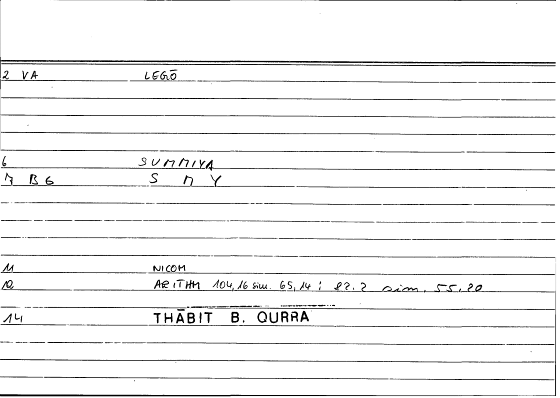 2 VA LEGŌ
6 SUMMIYA
7 B6 S M Y
11 NICOM
12 ARITHM 104,16 sim. 65,14; 82.2 sim. 55.20
14 THĀBIT B. QURRA